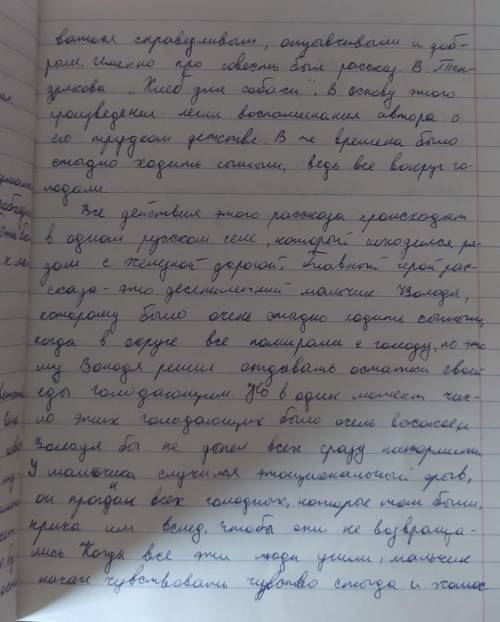 ваться справедливым, отзывчивыми и доб-
рым. Именно про совесть был рассказ. В Тен-
дрякова "Хлеб для собаки". В основу этого
произведения легли воспоминания автора о
его трудном детстве. В те времена было
стыдно ходить сытым, ведь все вокруг го-
лодали.
Все действия этого рассказа происходят
в одном русском селе, который находился ря-
дом с железной дорогой. Главный герой рас-
сказа - это десятилетний мальчик Володя,
которому было очень стыдно ходить сытым,
когда в округе все помирали с голоду, по это
му Володя решил отдавать остатки своей
еды голодающим. Но в один момент чис-
ло этих голодающих было очень высоким
Володя бы не успел всех сразу накормить
У мальчика случился эмоциональный срыв,
он прогнал всех голодных, которые там были,
крича им вслед, чтобы они не возвраща-
лись Когда все эти люди ушли, мальчик
начал чувствовать чувство стыда и жалос